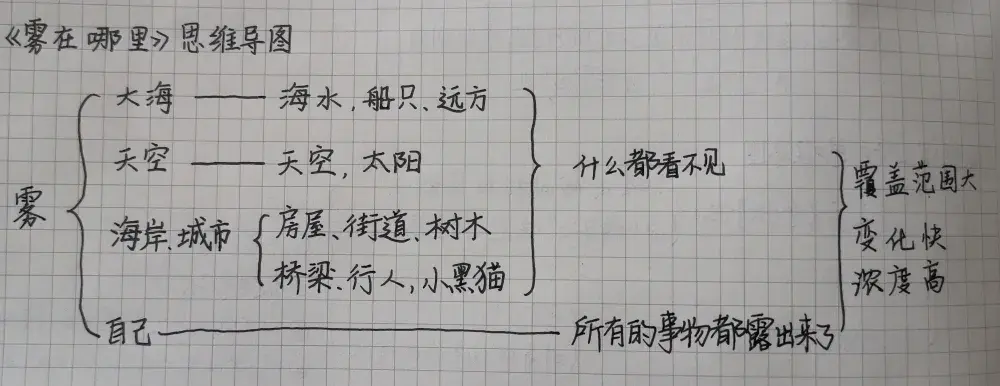 《雾在哪里》思维导图
大海 —— 海水,船只、远方
天空 —— 天空,太阳
什么都看不见
覆盖范围大
雾
海岸、城市
房屋、街道、树木
变化快
桥梁、行人,小黑猫
浓度高
自己 —— 所有的事物都露出来了